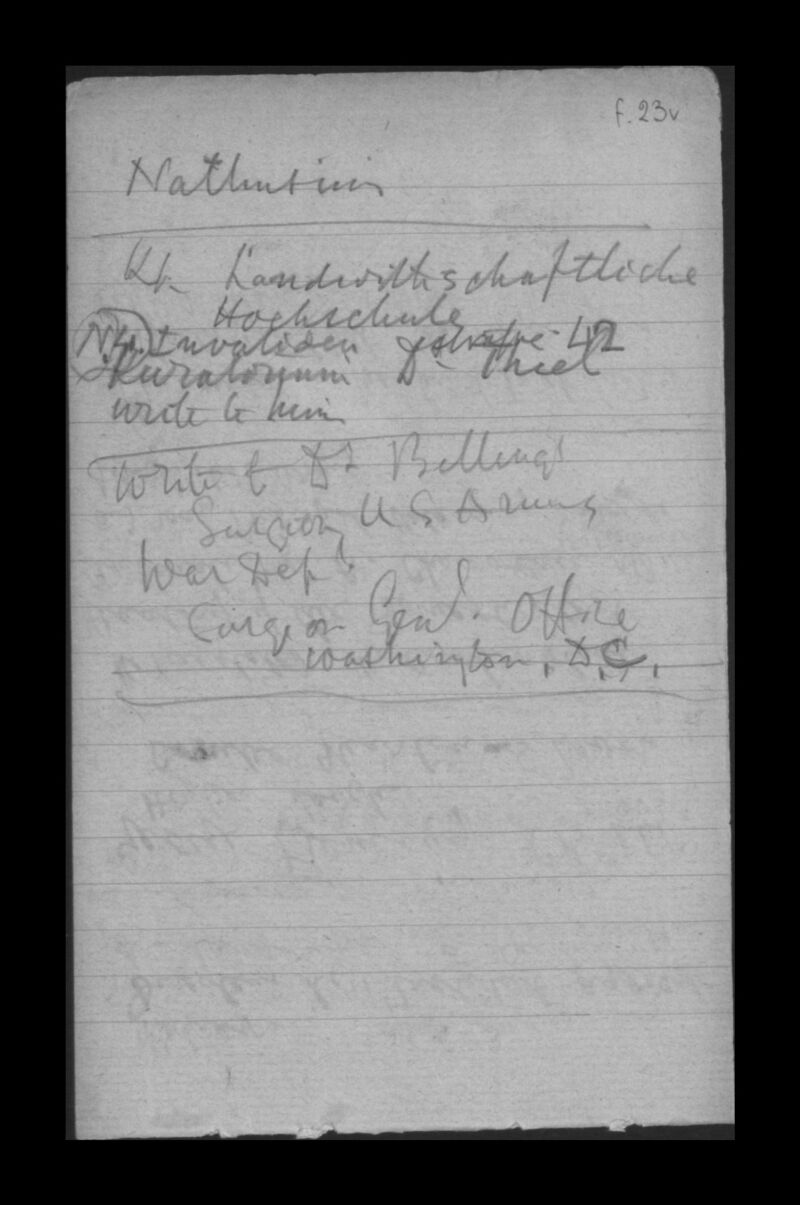 f. 23v
Nathusius
Kt. Landwirthschaftliche
Hochschule
N.W. Invaliden strasse 42
Kuratorium Dr Thiel
write to him
Write to Dr Billings
Surgeon U S Army
War Dept.
Surgeon Genl. Office
Washington, D.C.